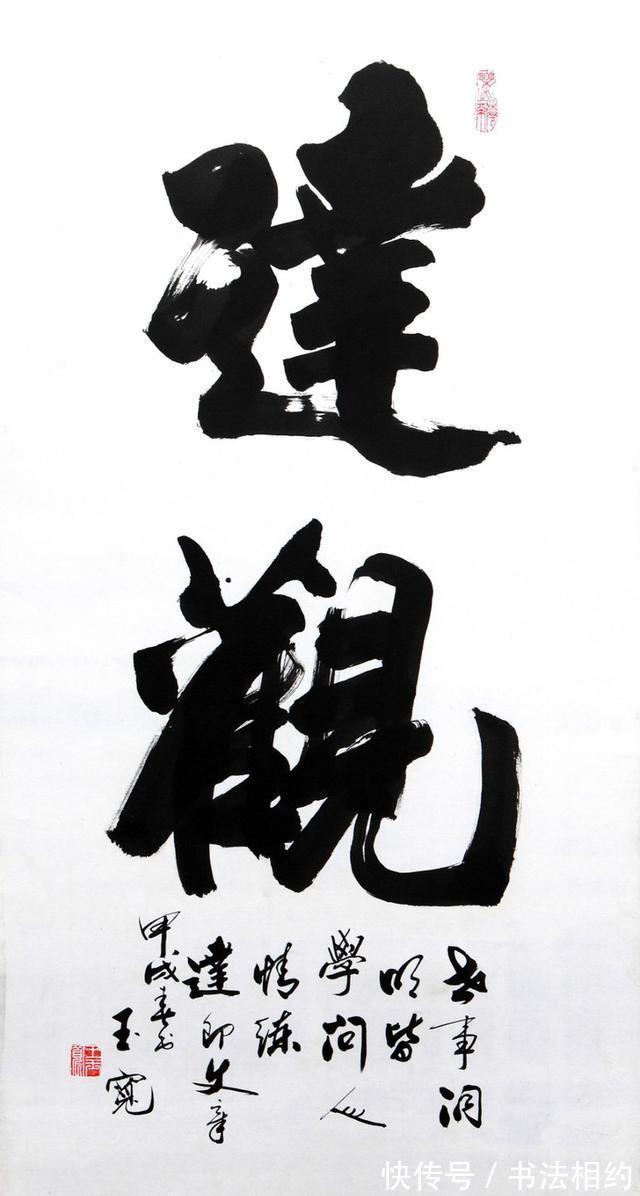 達觀
世事洞
明皆
學問人
情練
達即文章
甲戌春
玉寬
快传号 / 书法相约